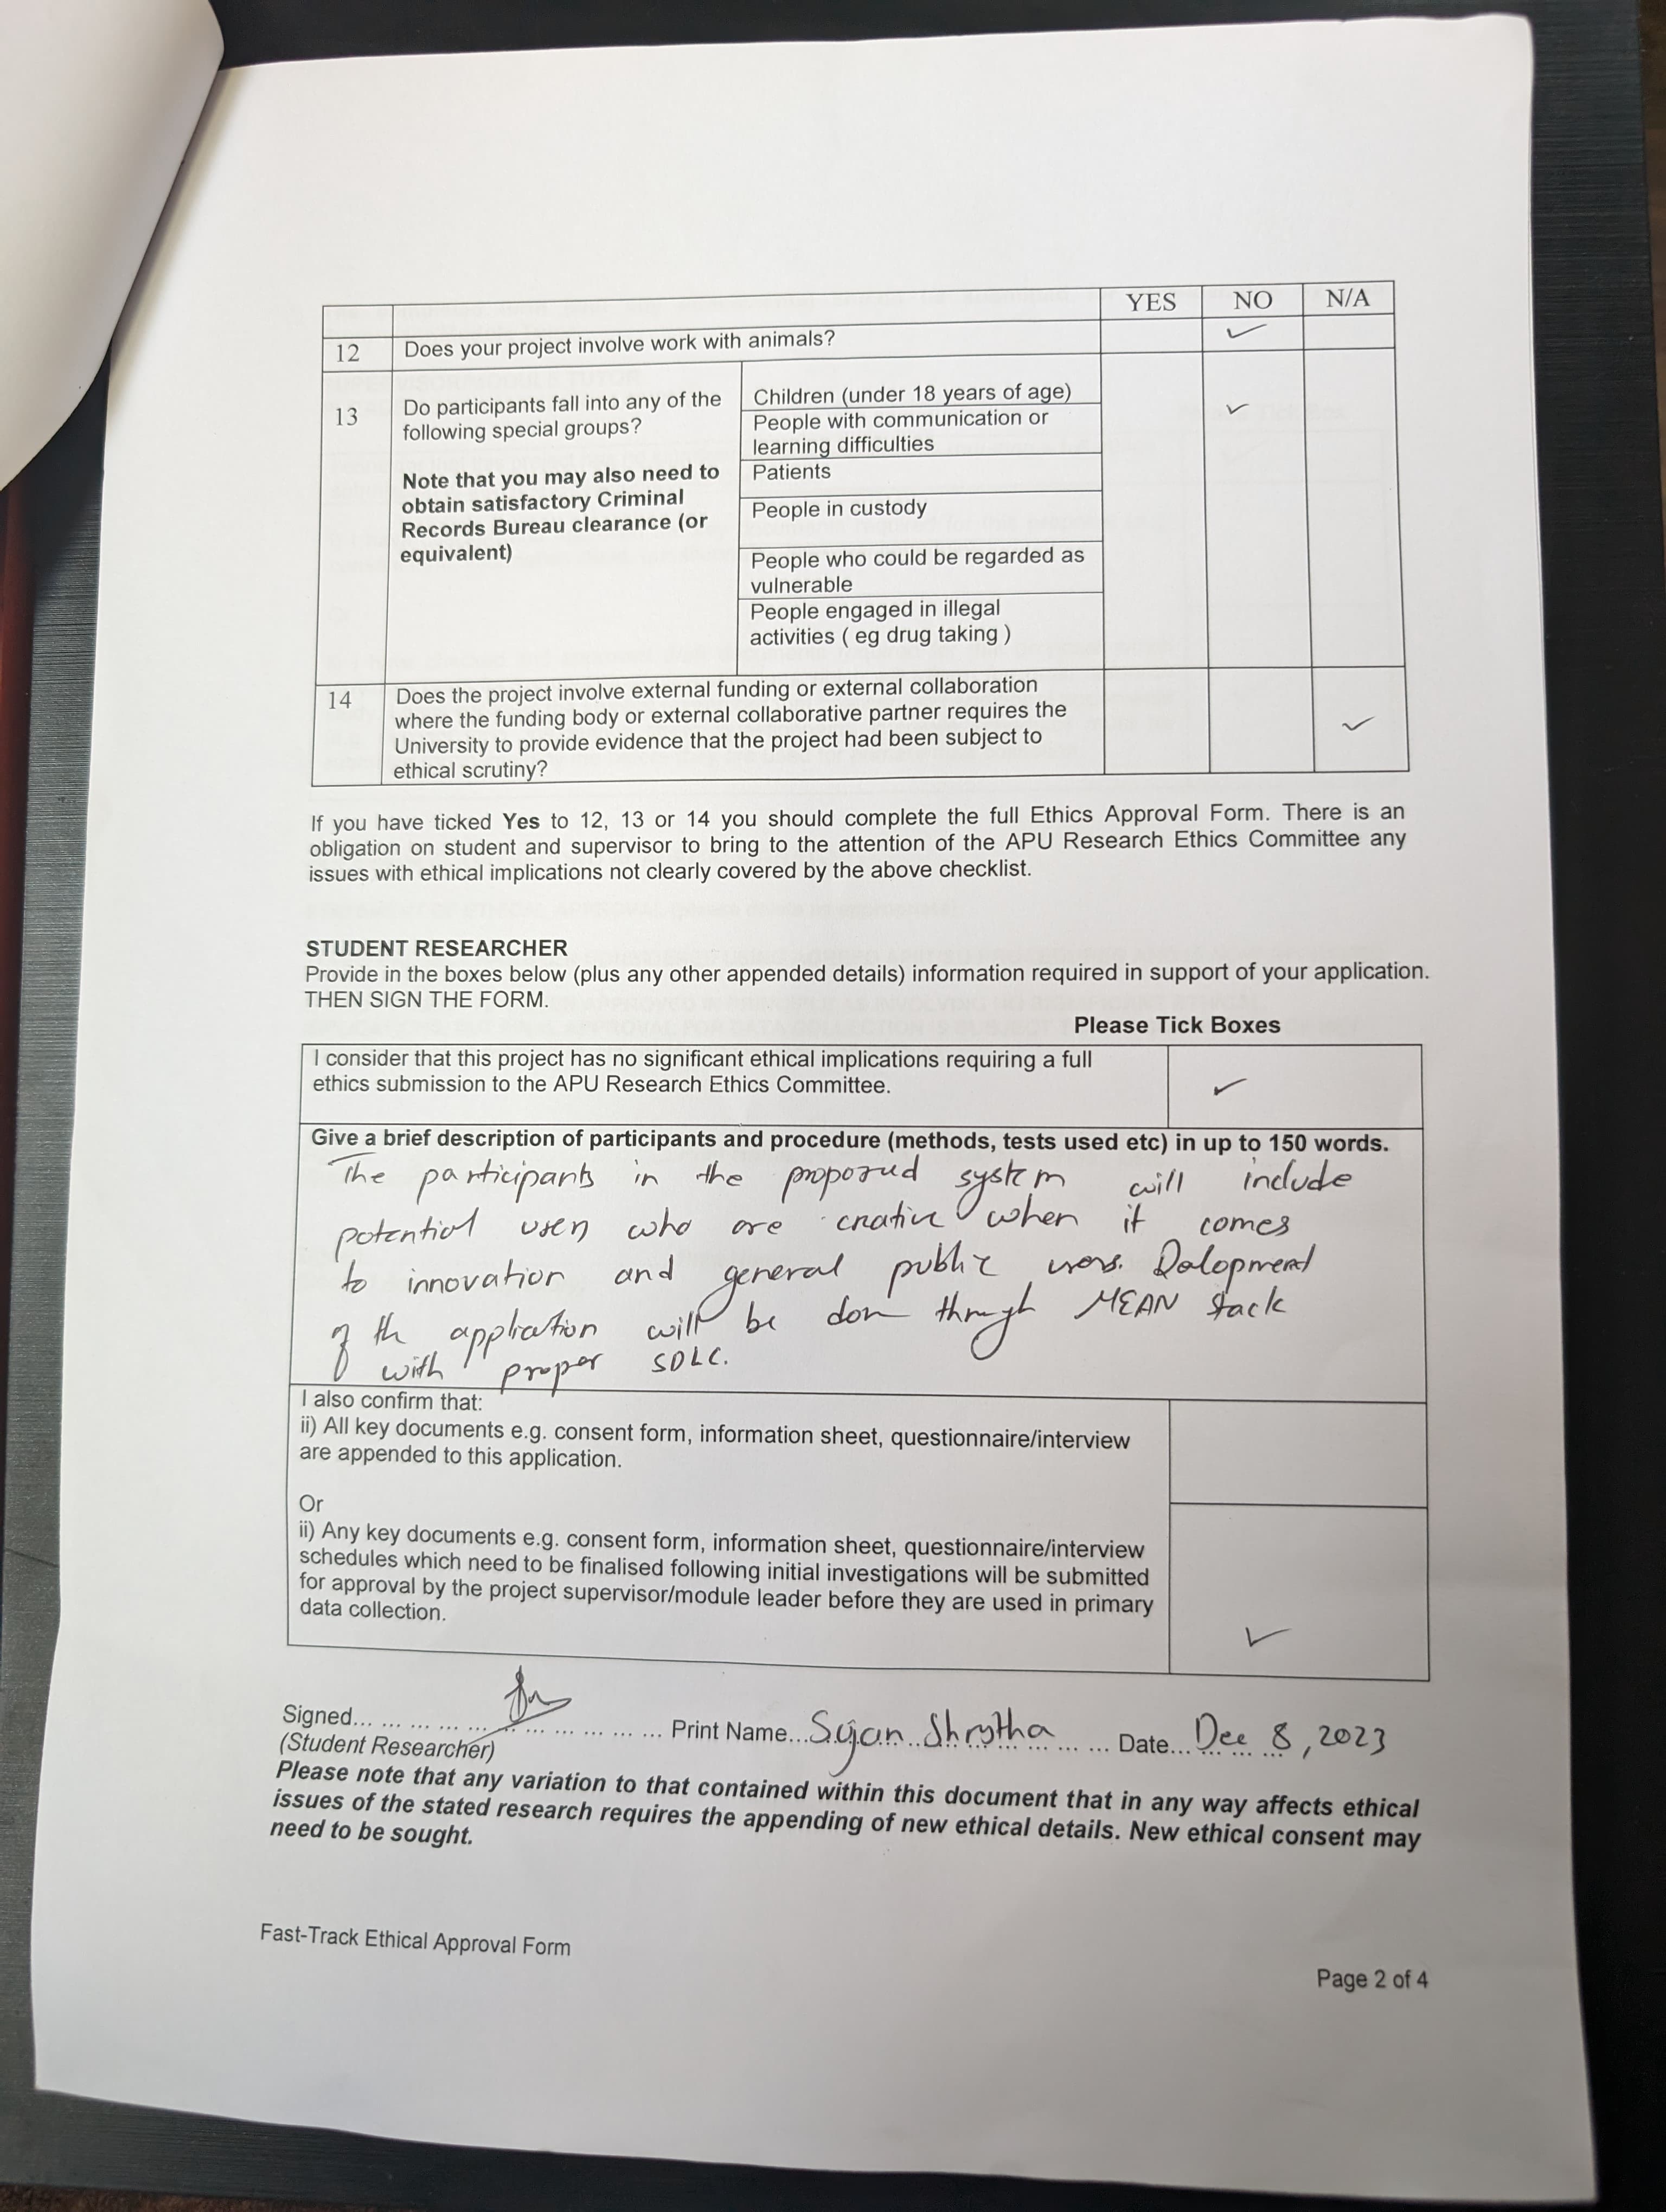 YES NO N/A
12 Does your project involve work with animals? ✓
13 Do participants fall into any of the
following special groups?
Note that you may also need to
obtain satisfactory Criminal
Records Bureau clearance (or
equivalent)
Children (under 18 years of age) ✓
People with communication or
learning difficulties
Patients
People in custody
People who could be regarded as
vulnerable
People engaged in illegal
activities ( eg drug taking )
14 Does the project involve external funding or external collaboration
where the funding body or external collaborative partner requires the
University to provide evidence that the project had been subject to
ethical scrutiny? ✓
If you have ticked Yes to 12, 13 or 14 you should complete the full Ethics Approval Form. There is an
obligation on student and supervisor to bring to the attention of the APU Research Ethics Committee any
issues with ethical implications not clearly covered by the above checklist.
STUDENT RESEARCHER
Provide in the boxes below (plus any other appended details) information required in support of your application.
THEN SIGN THE FORM.
Please Tick Boxes
I consider that this project has no significant ethical implications requiring a full
ethics submission to the APU Research Ethics Committee. ✓
Give a brief description of participants and procedure (methods, tests used etc) in up to 150 words.
The participants in the proposed system will include
potential users who are creative when it comes
to innovation and general public users.
of the application will be done through MEAN stack
with proper SDLC.
I also confirm that:
ii) All key documents e.g. consent form, information sheet, questionnaire/interview
are appended to this application.
Or
ii) Any key documents e.g. consent form, information sheet, questionnaire/interview
schedules which need to be finalised following initial investigations will be submitted
for approval by the project supervisor/module leader before they are used in primary
data collection. ✓
Signed... ... ... ... ... ... ... ... ... ... Print Name...Sijan Shrestha... ... Date...Dec 8, 2023
(Student Researcher)
Please note that any variation to that contained within this document that in any way affects ethical
issues of the stated research requires the appending of new ethical details. New ethical consent may
need to be sought.
Fast-Track Ethical Approval Form
Page 2 of 4